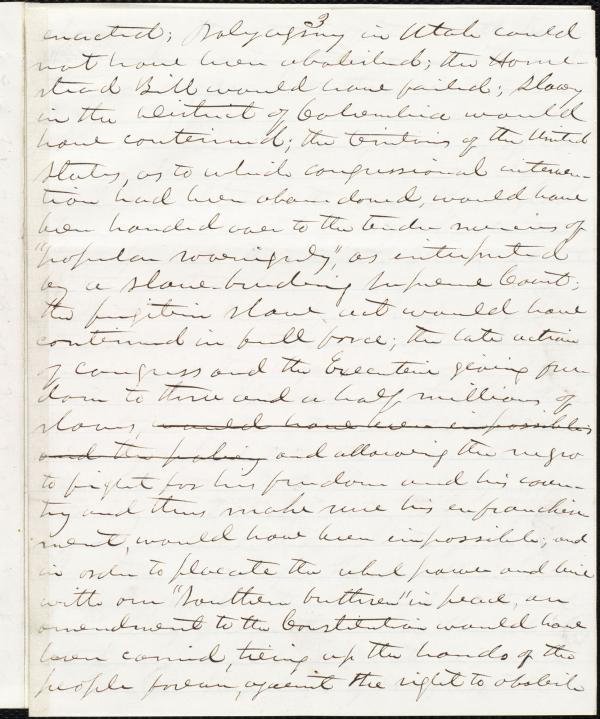 3
enacted; Polygamy in Utah could
not have been abolished; the Home-
stead Bill would have failed; slavery
in the District of Columbia would
have continued; the territories of the United
States, as to which congressional interven-
tion had been abandoned, would have
been handed over to the tender mercies of
"popular sovereignty", as interpreted
by a slave-breeding Supreme Court;
the fugitive slave act would have
continued in full force; the late action
of Congress and the Executive giving free-
dom to three and a half millions of
slaves, would have been impossible;
and the policy and allowing the negro
to fight for his freedom and his coun-
try and thus make sure his enfranchise-
ment, would have been impossible; and
in order to placate the rebel power and live
with our "Southern brethren" in peace, an
amendment to the Constitution would have
been carried, tieing up the hands of the
people forever, against the right to abolish